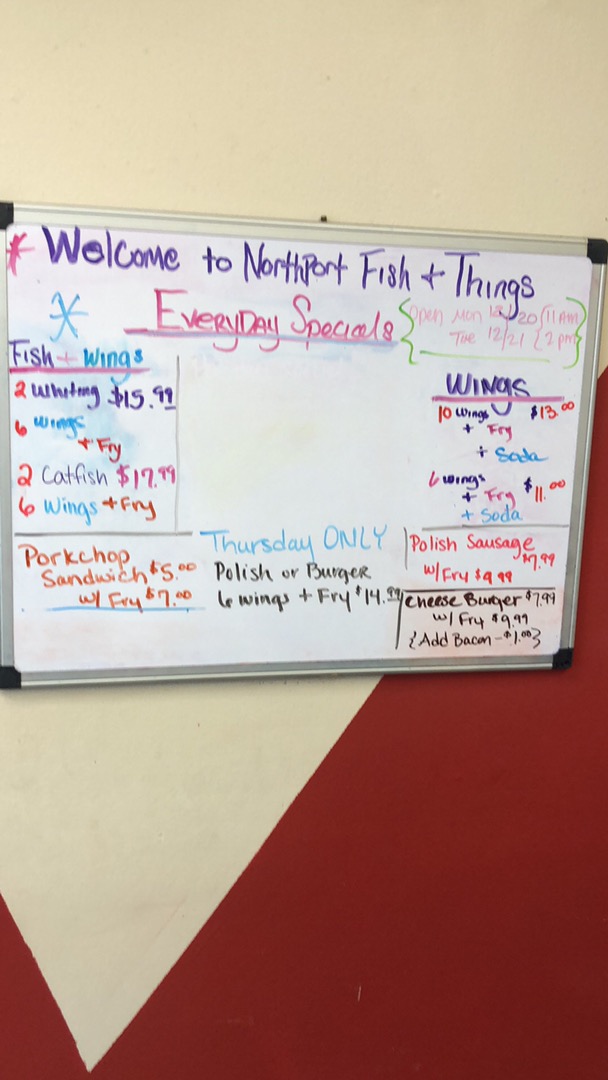 * Welcome to Northport Fish + Things
* Everyday Specials
{Open Mon 12/20 (11 Am
Tue 12/21 (2 pm}
Fish + Wings
2 Whiting $15.99
6 Wings
+ Fry
2 Catfish $17.99
6 Wings + Fry
Wings
10 Wings $13.00
+ Fry
+ Soda
6 wings $11.00
+ Fry
+ Soda
Porkchop
Sandwich $5.00
w/ Fry $7.00
Thursday ONLY
Polish or Burger
6 wings + Fry $14.99
Polish Sausage
$7.99
w/ Fry $9.99
Cheese Burger $7.99
w/ Fry $9.99
{Add Bacon - $1.00}